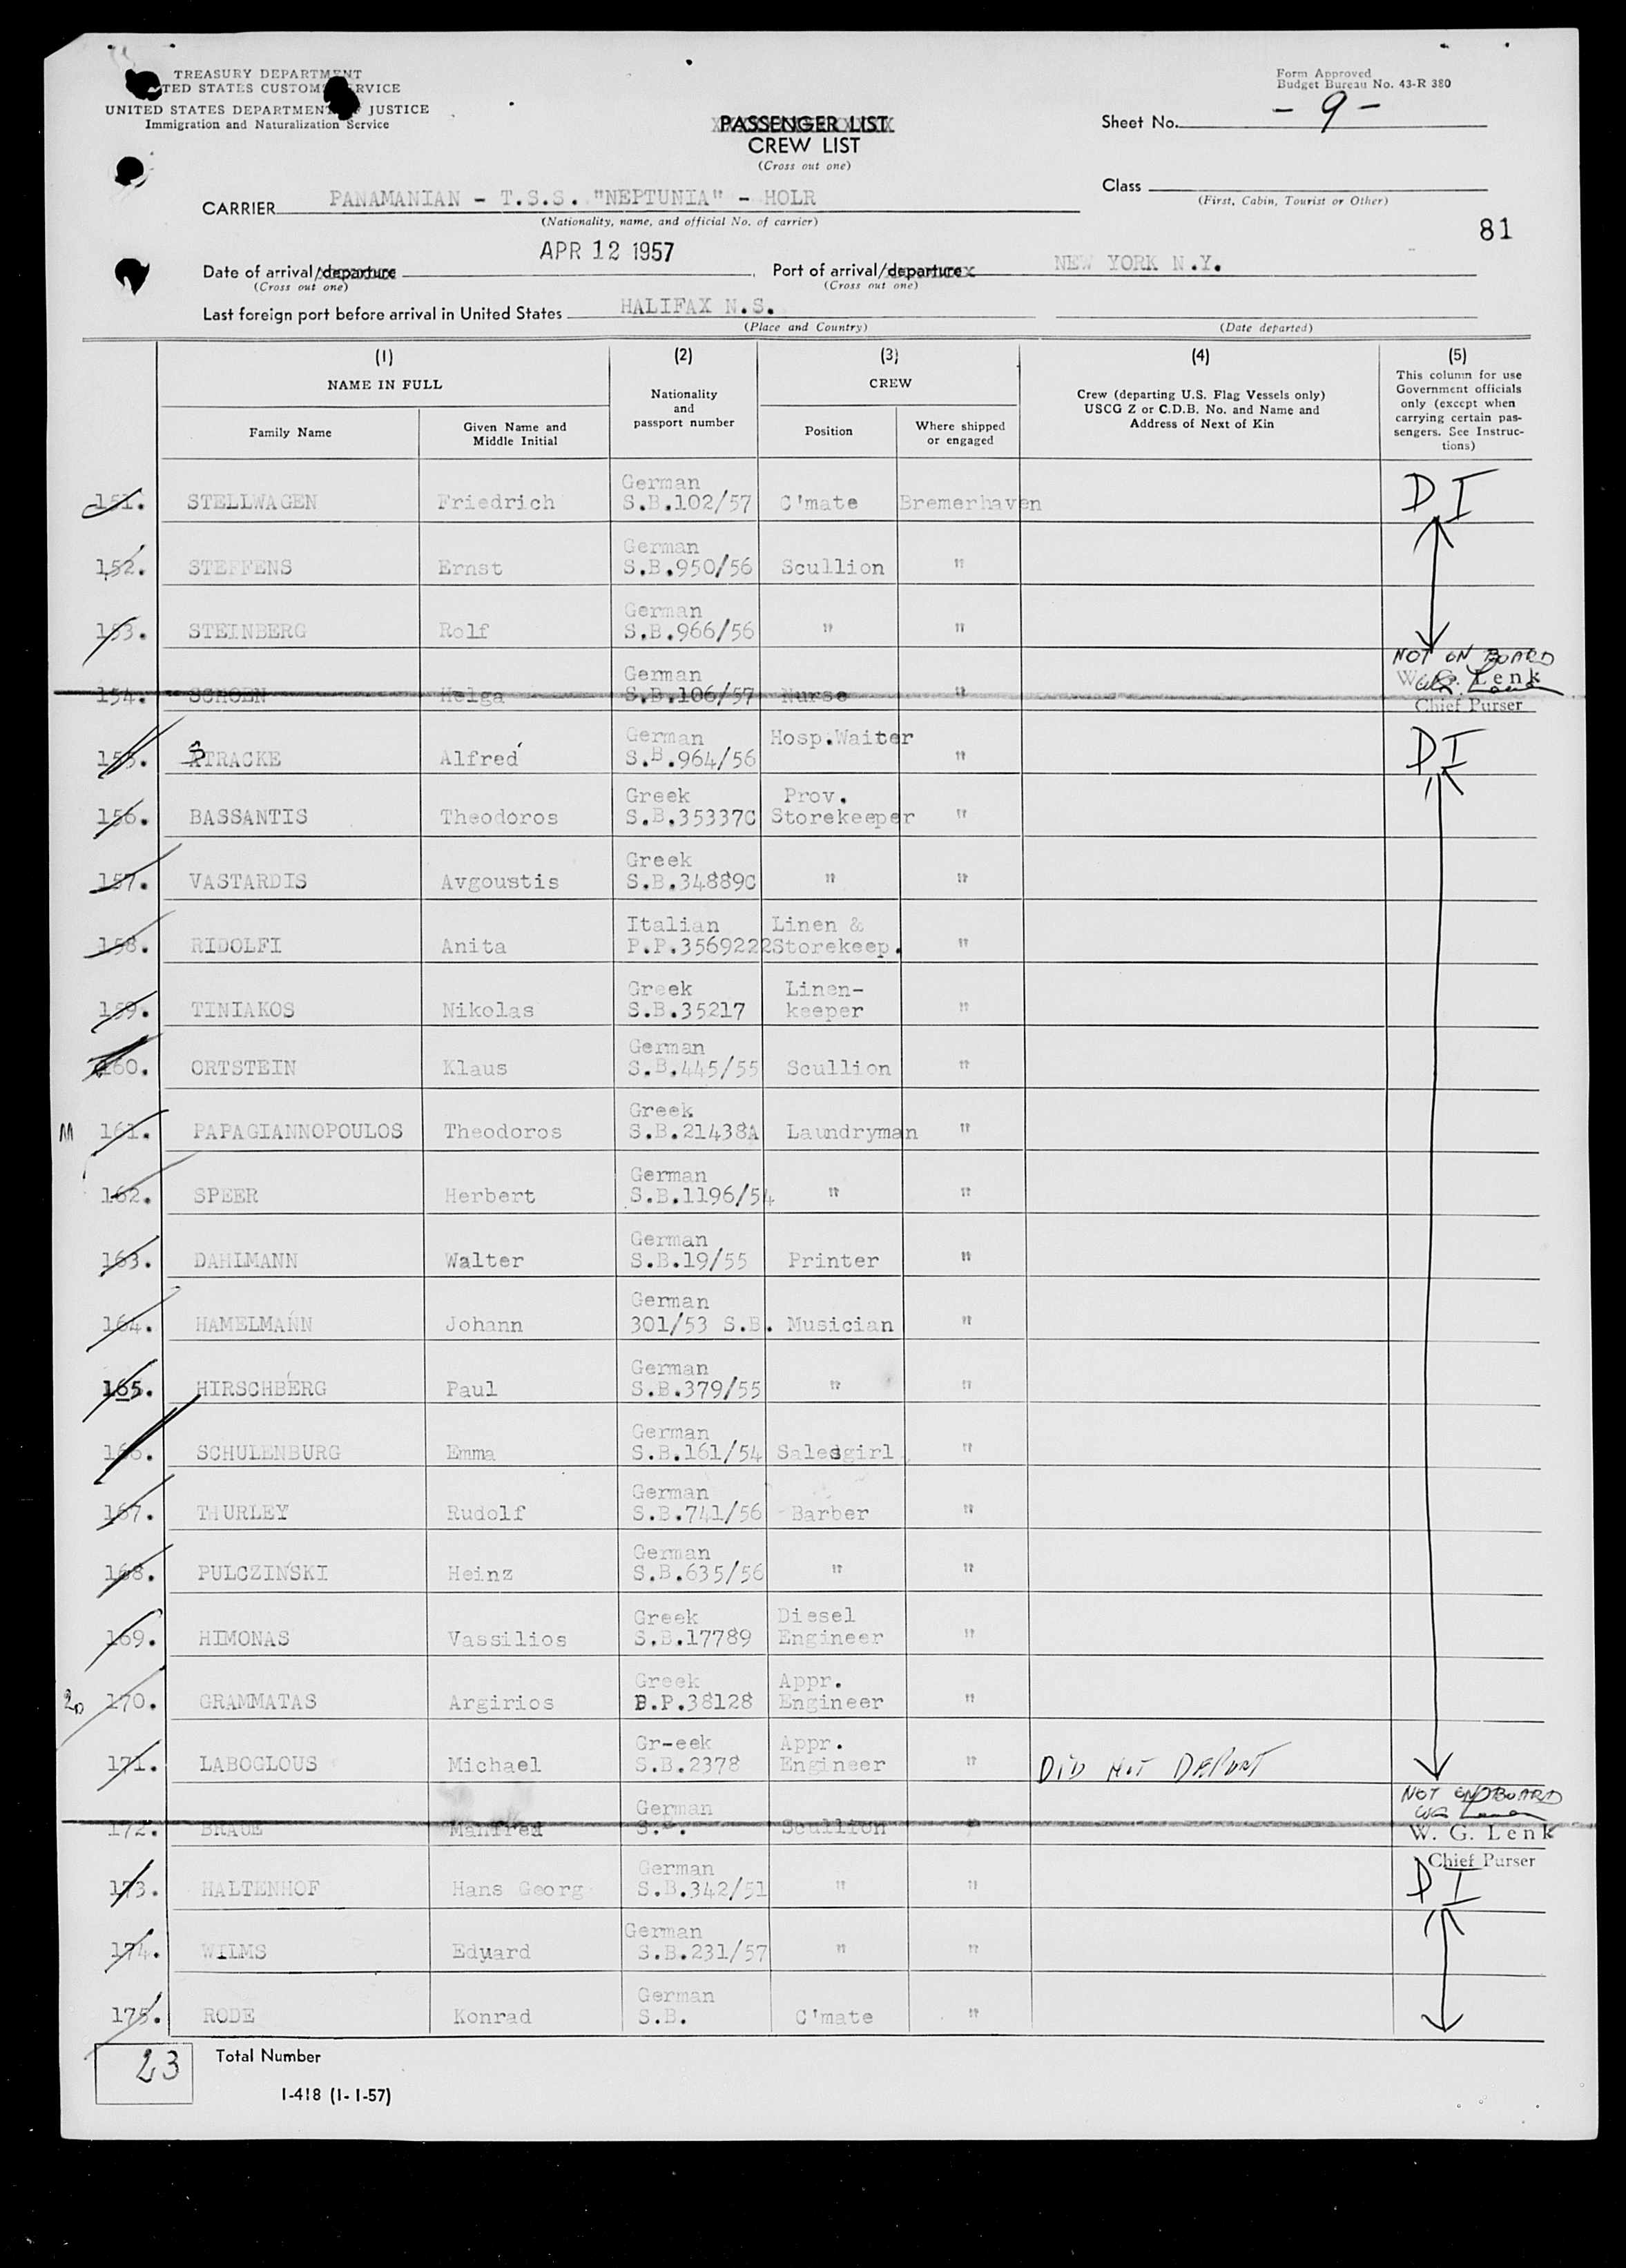 TREASURY DEPARTMENT
UNITED STATES CUSTOMS SERVICE
UNITED STATES DEPARTMENT OF JUSTICE
Immigration and Naturalization Service
Form Approved
Budget Bureau No. 43-R 380
PASSENGER LIST
CREW LIST
(Cross out one)
Sheet No. - 9 -
Class
(First, Cabin, Tourist or Other)
CARRIER PANAMANIAN - T.S.S. "NEPTUNIA" - HOLR
(Nationality, name, and official No. of carrier)
81
Date of arrival/departure APR 12 1957 Port of arrival/departure NEW YORK N.Y.
(Cross out one) (Cross out one)
Last foreign port before arrival in United States HALIFAX N.S.
(Place and Country) (Date departed)
(1) (2) (3) (4) (5)
NAME IN FULL
Family Name
Given Name and
Middle Initial
Nationality
and
passport number
CREW
Position
Where shipped
or engaged
Crew (departing U.S. Flag Vessels only)
USCG Z or C.D.B. No. and Name and
Address of Next of Kin
This column for use
Government officials
only (except when
carrying certain pas-
sengers. See Instruc-
tions)
German
151. STELLWAGEN Friedrich S.B.102/57 C'mate Bremerhaven D I
German
152. STEFFENS Ernst S.B.950/56 Scullion "
German
153. STEINBERG Rolf S.B.966/56 " "
NOT ON BOARD
German W. G. Lenk
154. SCHOEN Helga S.B.106/57 Nurse "
Chief Purser
German Hosp.Waiter
155. STRACKE Alfred S.B.964/56 " D I
Greek Prov.
156. BASSANTIS Theodoros S.B.35337C Storekeeper "
Greek
157. VASTARDIS Avgoustis S.B.34889C " "
Italian Linen &
158. RIDOLFI Anita P.P.3569222 Storekeep. "
Greek Linen-
159. TINIAKOS Nikolas S.B.35217 keeper "
German
160. ORTSTEIN Klaus S.B.445/55 Scullion "
Greek
M 161. PAPAGIANNOPOULOS Theodoros S.B.21438A Laundryman "
German
162. SPEER Herbert S.B.1196/54 " "
German
163. DAHLMANN Walter S.B.19/55 Printer "
German
164. HAMELMANN Johann 301/53 S.B. Musician "
German
165. HIRSCHBERG Paul S.B.379/55 " "
German
166. SCHULENBURG Emma S.B.161/54 Salesgirl "
German
167. THURLEY Rudolf S.B.741/56 Barber "
German
168. PULCZINSKI Heinz S.B.635/56 " "
Greek Diesel
169. HIMONAS Vassilios S.B.17789 Engineer "
Greek Appr.
170. GRAMMATAS Argirios P.P.38128 Engineer "
Gr-eek Appr.
171. LABOGLOUS Michael S.B.2378 Engineer " DID NOT DEPART
NOT ON BOARD
German
172. BRAUE Manfred S.B. Scullion "
W. G. Lenk
Chief Purser
German
173. HALTENHOF Hans Georg S.B.342/51 " " D I
German
174. WILMS Eduard S.B.231/57 " "
German
175. RODE Konrad S.B. C'mate "
23 Total Number
I-418 (1-1-57)